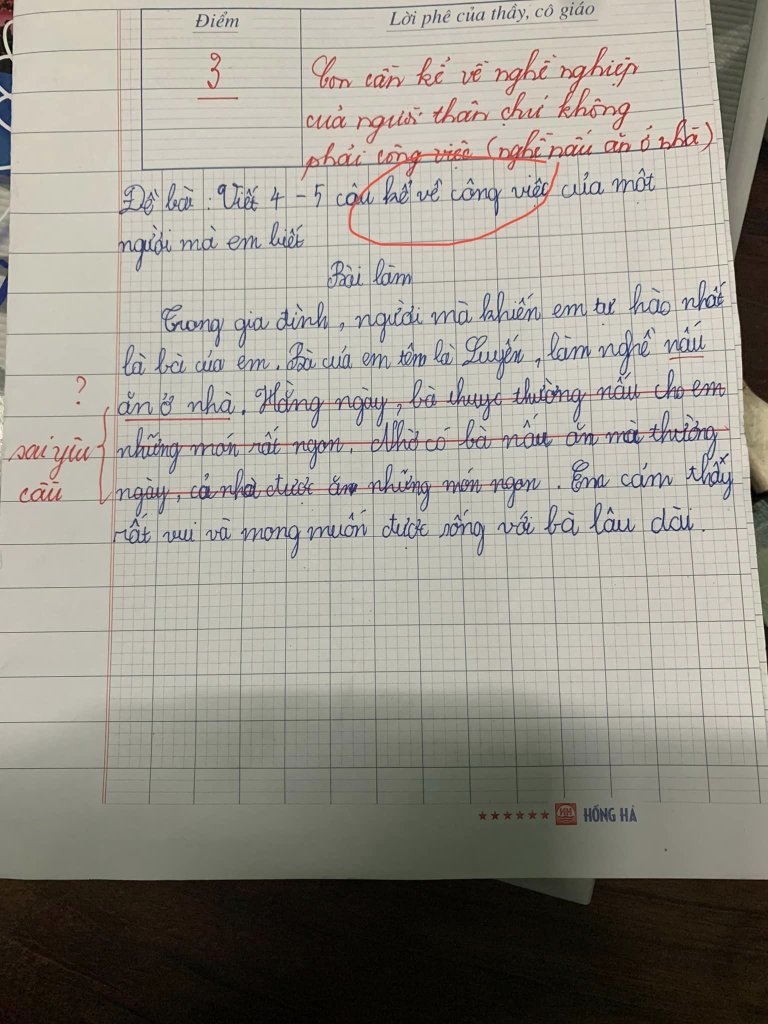 Điểm
Lời phê của thầy, cô giáo
3
Con cần kể về nghề nghiệp
của người thân chứ không
phải công việc (nghề nấu ăn ở nhà)
Đề bài: Viết 4 - 5 câu kể về công việc của một
người mà em biết
Bài làm
Trong gia đình, người mà khiến em tự hào nhất
là bà của em. Bà của em tên là Luyến, làm nghề nấu
?
ăn ở nhà. Hằng ngày, bà thường nấu cho em
sai yêu
những món rất ngon. Nhờ có bà nấu ăn mà thường
cầu
ngày, cả nhà được ăn những món ngon. Em cảm thấy
rất vui và mong muốn được sống với bà lâu dài.
HỒNG HÀ